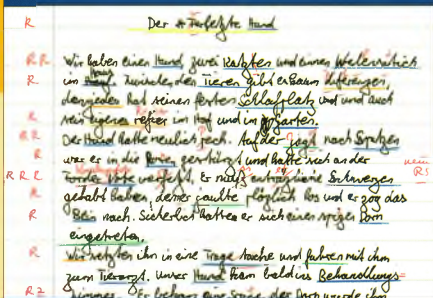 R Der verletzte Hund
R R Wir haben einen Hund, zwei Katzten und einnen Welensittich
R im Haus. Zwischen den Tieren gibt es kaum diferenzen,
den jeder hat seinen festen Schlafplatz und und auch
R sein eigenes refier im Hof und in Garten.
R R Der Hund hatte neulich pech. Auf der jagt nach Spatzen
R war er in die gestürzt und hatte sich an der
R R R Forder Pfote verletzt. Er muß Schmerzen nein RS
R gehabt haben, denner jaulte plözlich los und er zog das
R Bein nach. Sicherlich hatte er sich einen spizen Dorn
eingetreten.
R Wir setzten ihn in eine Trage tasche und fuhren mit ihm
zum Tierarzt. Unser Hund kam bald ins Behandlungs-
R Z zimmer. Er bekam eine Dorn wurde ihm